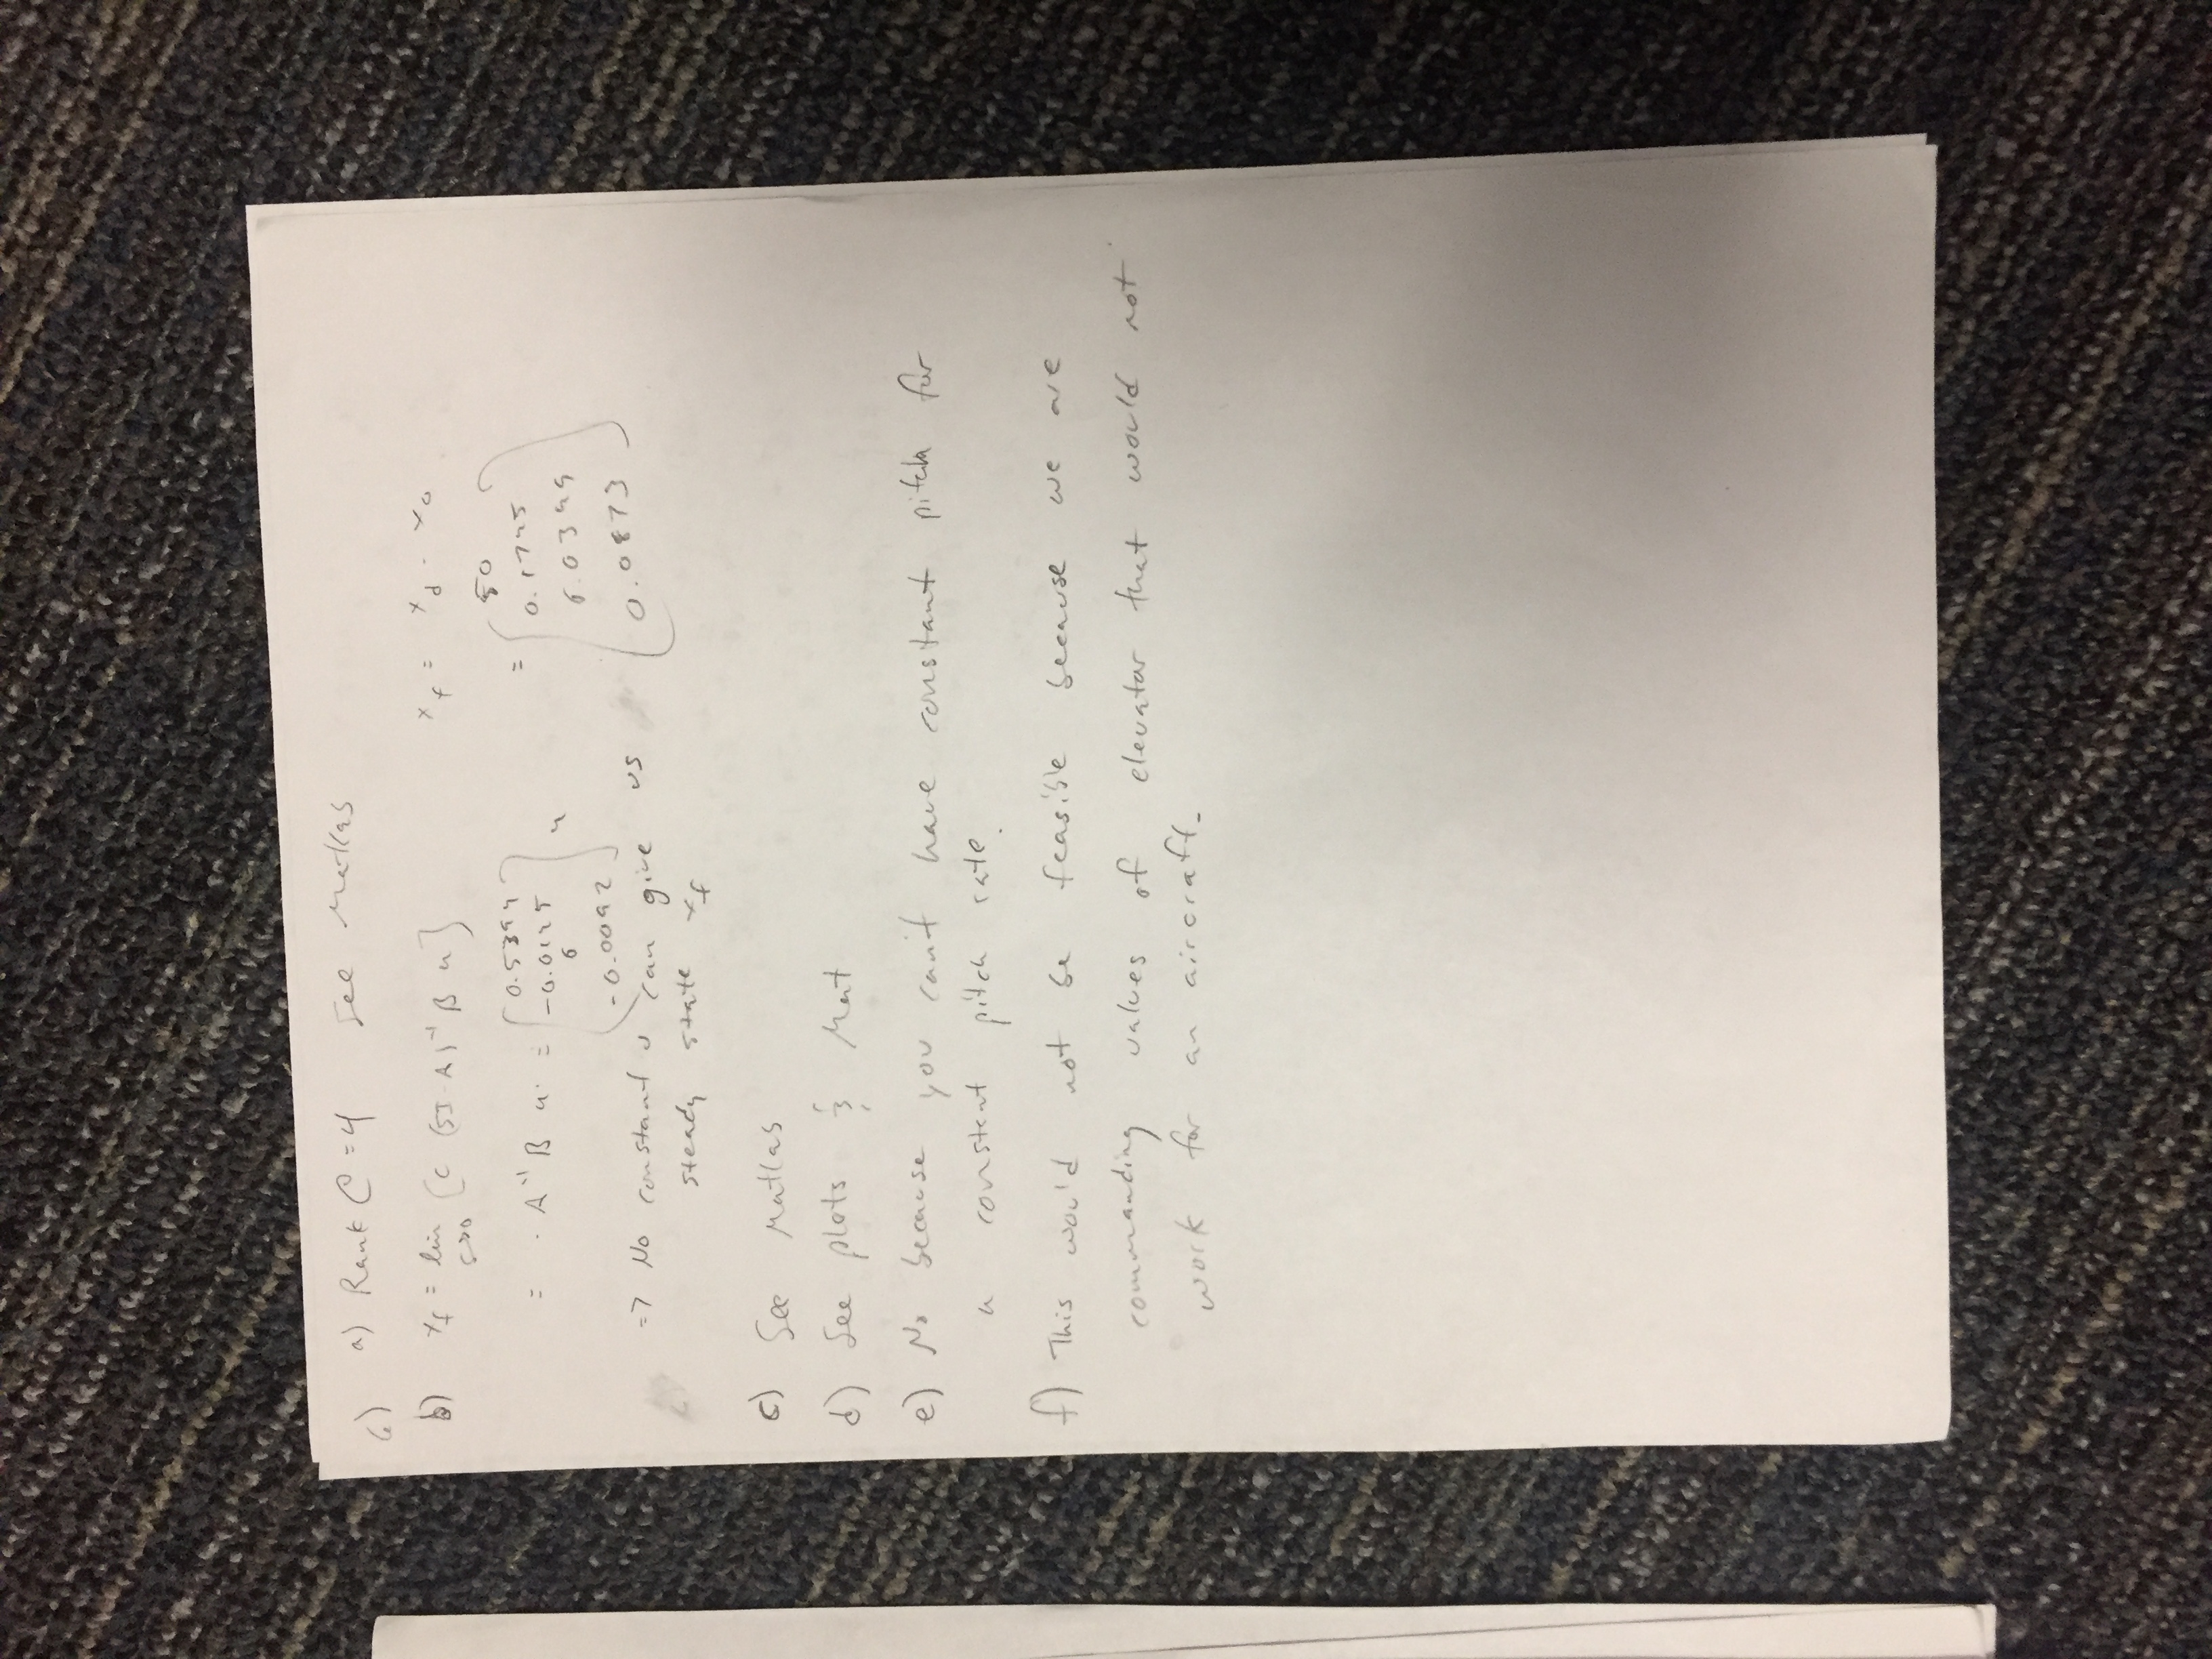 6) a) Rank C = 4 See Matlab
b) x_f = lim s→0 [C (SI-A)⁻¹ B u] x_f = x_d - x_0
= -A⁻¹ B u = [0.5394 -0.0145 0 -0.0092] u = [50 0.1745 0.0349 0.0873]
=> No constant u can give us
steady state x_f
c) See Matlab
d) See plots & Mat
e) No because you can't have constant pitch for
a constant pitch rate.
f) This would not be feasible because we are
commanding values of elevator that would not
work for an aircraft.